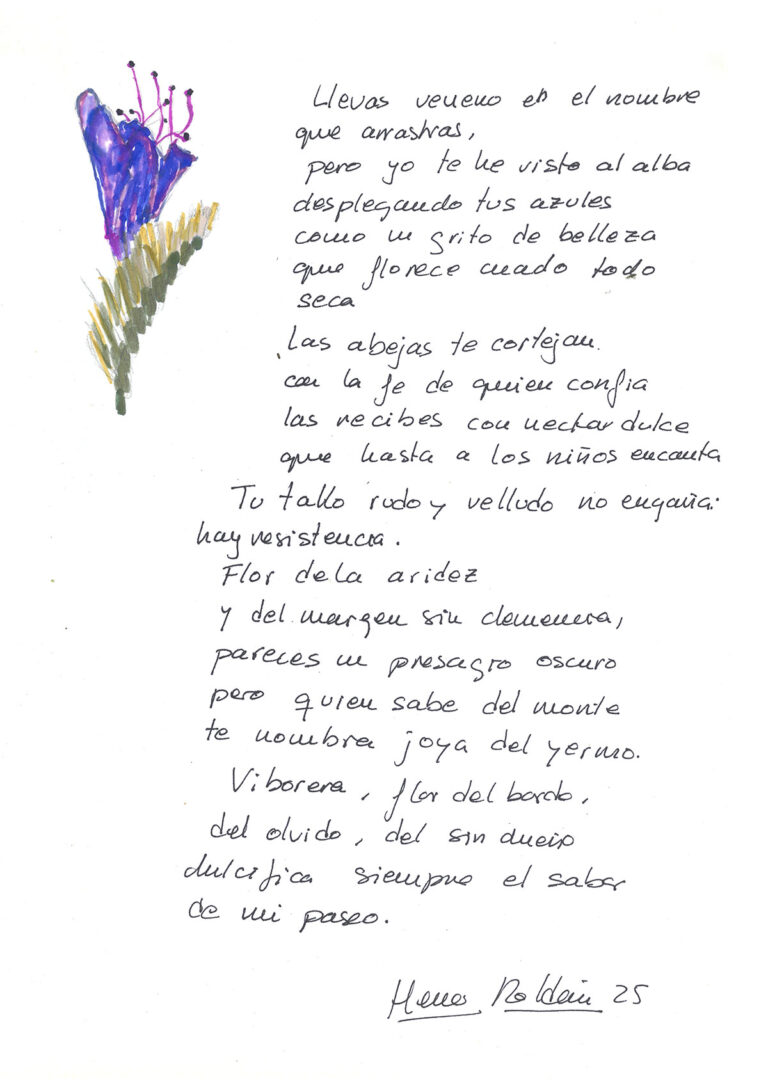 Llevas veneno en el nombre
que arrastras,
pero yo te he visto al alba
desplegando tus azules
como un grito de belleza
que florece cuado todo
seca
Las abejas te cortejan.
con la fe de quien confia
las recibes con nectar dulce
que hasta a los niños encanta
Tu tallo rudo y velludo no engaña:
hay resistencia.
Flor de la aridez
y del margen sin clemencia,
pareces un presagio oscuro
pero quien sabe del monte
te nombra joya del yermo.
Viborera, flor del borde,
del olvido, del sin dueño
dulcifica siempre el sabor
de mi paseo.
Roldán 25